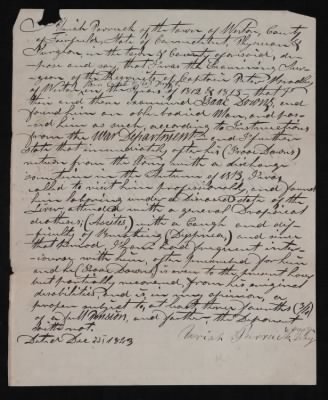 I Uriah Turrick of the town of Weston, County
of Fairfield, State of Connecticut, Physician &
Surgeon, in the town & County aforesaid, de-
pose and say that I was the Examining Sur-
geon of the Recruits of Captain Peter Bradley
of Weston, in the years of 1812 & 1813 — that I
then and there examined Isaac Downs, and
found him an able bodied Man, and pas-
sed him as such, according to Instructions
from the War Department. and I further
state that immediately after his (Isaac Downs)
return from the Army with a discharge
sometime in the Autumn of 1813, I was
called to visit him professionally, and found
him labouring under a diseased state of the
Liver attended with a general Dropsical
diathesis, (Ascites) with a Cough and dif-
ficulty of Breathing (Dyspnea) and since
that period, I have had frequent inter-
views with him, often prescribed for him
and he (Isaac Downs) is even to the present hour
but partially recovered, from his original
disabilities, and is in my opinion, a
proper subject to, at least three fourths (3/4)
of a full Pension, and further, the Deponent
saith not.
Dated Dec 25, 1843
Uriah Turrick